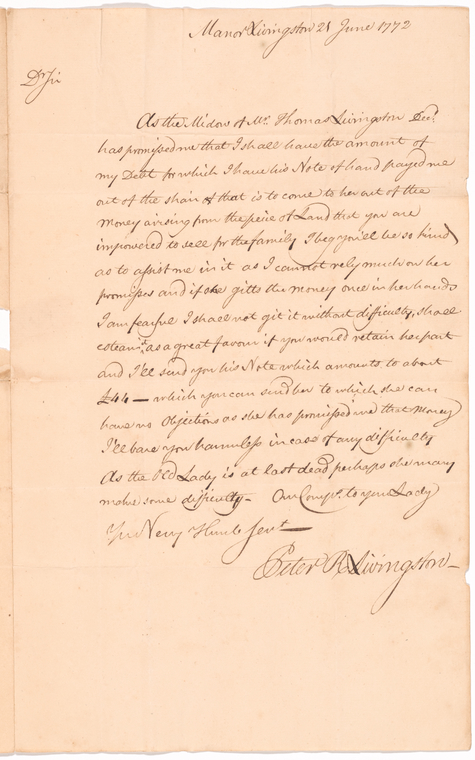 Manor Livingston 21 June 1772
Dr Sir
As the Widow of Mr. Thomas Livingston Decd
has promised me that I shall have the amount of
my Debt for which I have his Note of hand payed me
out of the shair of that is to come to her out of the
Money arising from the peice of Land that you are
impowered to sell for the family I beg you'll be so kind
as to assist me in it as I cannot rely much on her
promises and if she gitts the money once in her hands
I am fearful I shall not git it without difficulty, shall
esteam it as a great favour if you would retain her part
and I'll send you his Note which amounts to about
£44 — which you can send her to which she can
have no Objections as she has promised me that Money
I'll bare you harmless in case of any difficulty
As the Old Lady is at last dead perhaps she many
make some difficulty — Our Compts. to your Lady
Your Very Humle Servt —
Peter R Livingston —